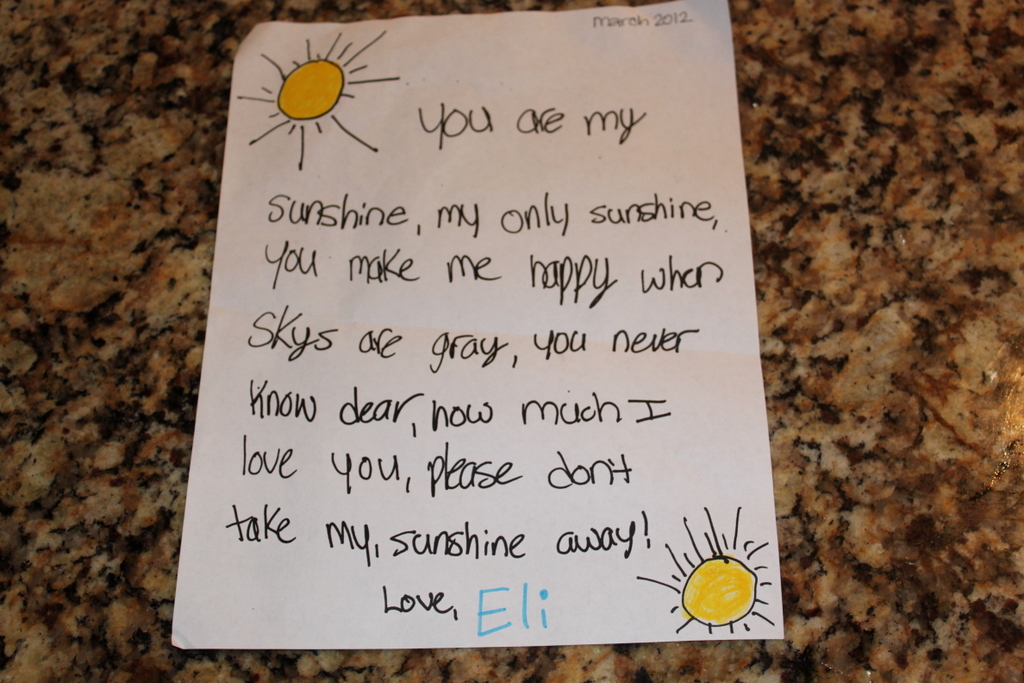 march 2012
You are my
sunshine, my only sunshine,
you make me happy when
skys are gray, you never
know dear, how much I
love you, please don't
take my, sunshine away!
Love, Eli